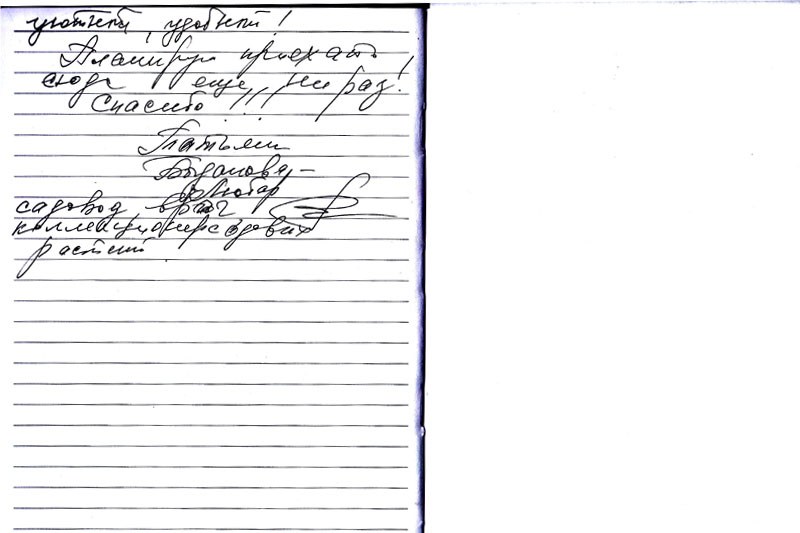 уютный, удобный!
Планирую приехать
сюда еще не раз!
Спасибо!!!
Татьяна
садовод, врач
коллекционер садовых
растений